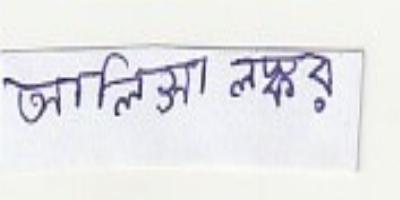 আলিসা লস্কর